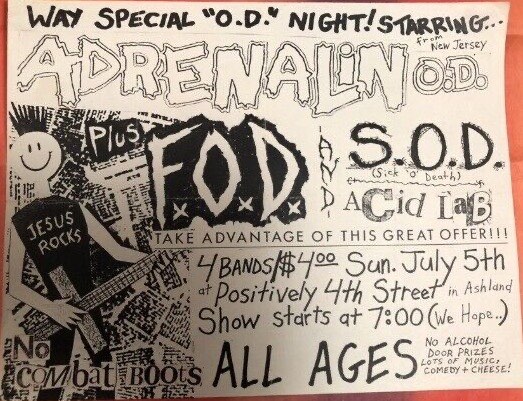 WAY SPECIAL "O.D." NIGHT! STARRING...
ADRENALIN O.D.
from New Jersey
Plus
F.O.D.
AND
S.O.D.
(Sick 'O' Death)
ACid LaB
JESUS ROCKS
TAKE ADVANTAGE OF THIS GREAT OFFER!!!
4 BANDS/$4.00 Sun. July 5th
at Positively 4th Street in Ashland
Show starts at 7:00 (We Hope..)
No
COMbat BOOts
ALL AGES
NO ALCOHOL
DOOR PRIZES
LOTS OF MUSIC,
COMEDY + CHEESE!